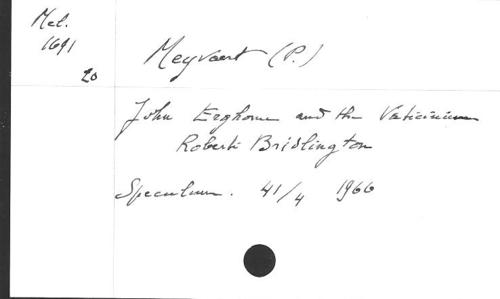 Mel.
1691
20
Meyvaert (P.)
John Erghome and the Vaticinium
Roberti Bridlington
Speculum. 41/4 1966